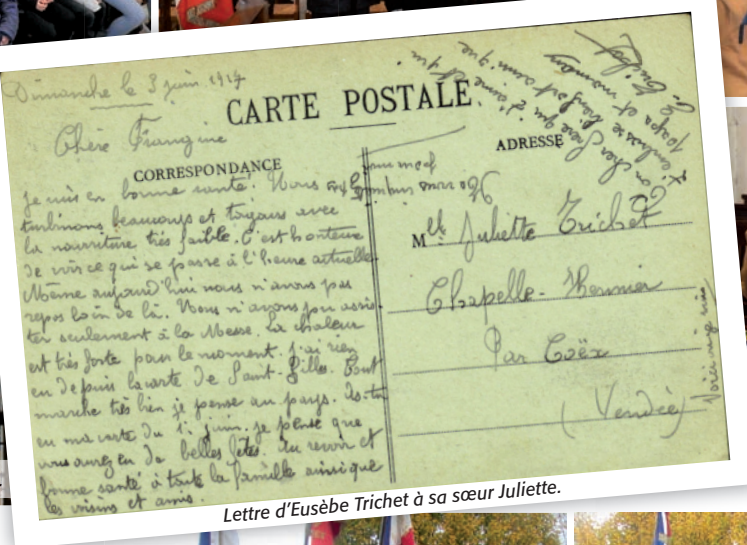 Dimanche le 3 juin 1917
CARTE POSTALE
Chère Frangine
CORRESPONDANCE
ADRESSE
Je suis en bonne santé. Nous
turbinons beaucoup et toujours avec
la nourriture très faible. C'est honteux
de voir ce qui se passe à l'heure actuelle
Même aujourd'hui nous n'avons pas
repos loin de là. Nous n'avons pu assis
ter seulement à la Messe. La chaleur
est très forte pour le moment. J'ai rien
eu depuis la carte de Saint-Gilles. Tout
marche très bien je pense au pays. As-tu
eu ma carte du 1er juin. Je pense que
vous aurez eu de belles fêtes. Au revoir et
bonne santé à toute la famille ainsi que
les voisins et amis.
Ton cher frère qui t'aime et qui
t'embrasse bien fort ainsi que
papa et maman
Mlle Juliette Trichet
Chapelle-Hermier
Par Coëx
(Vendée)
Lettre d'Eusèbe Trichet à sa sœur Juliette.